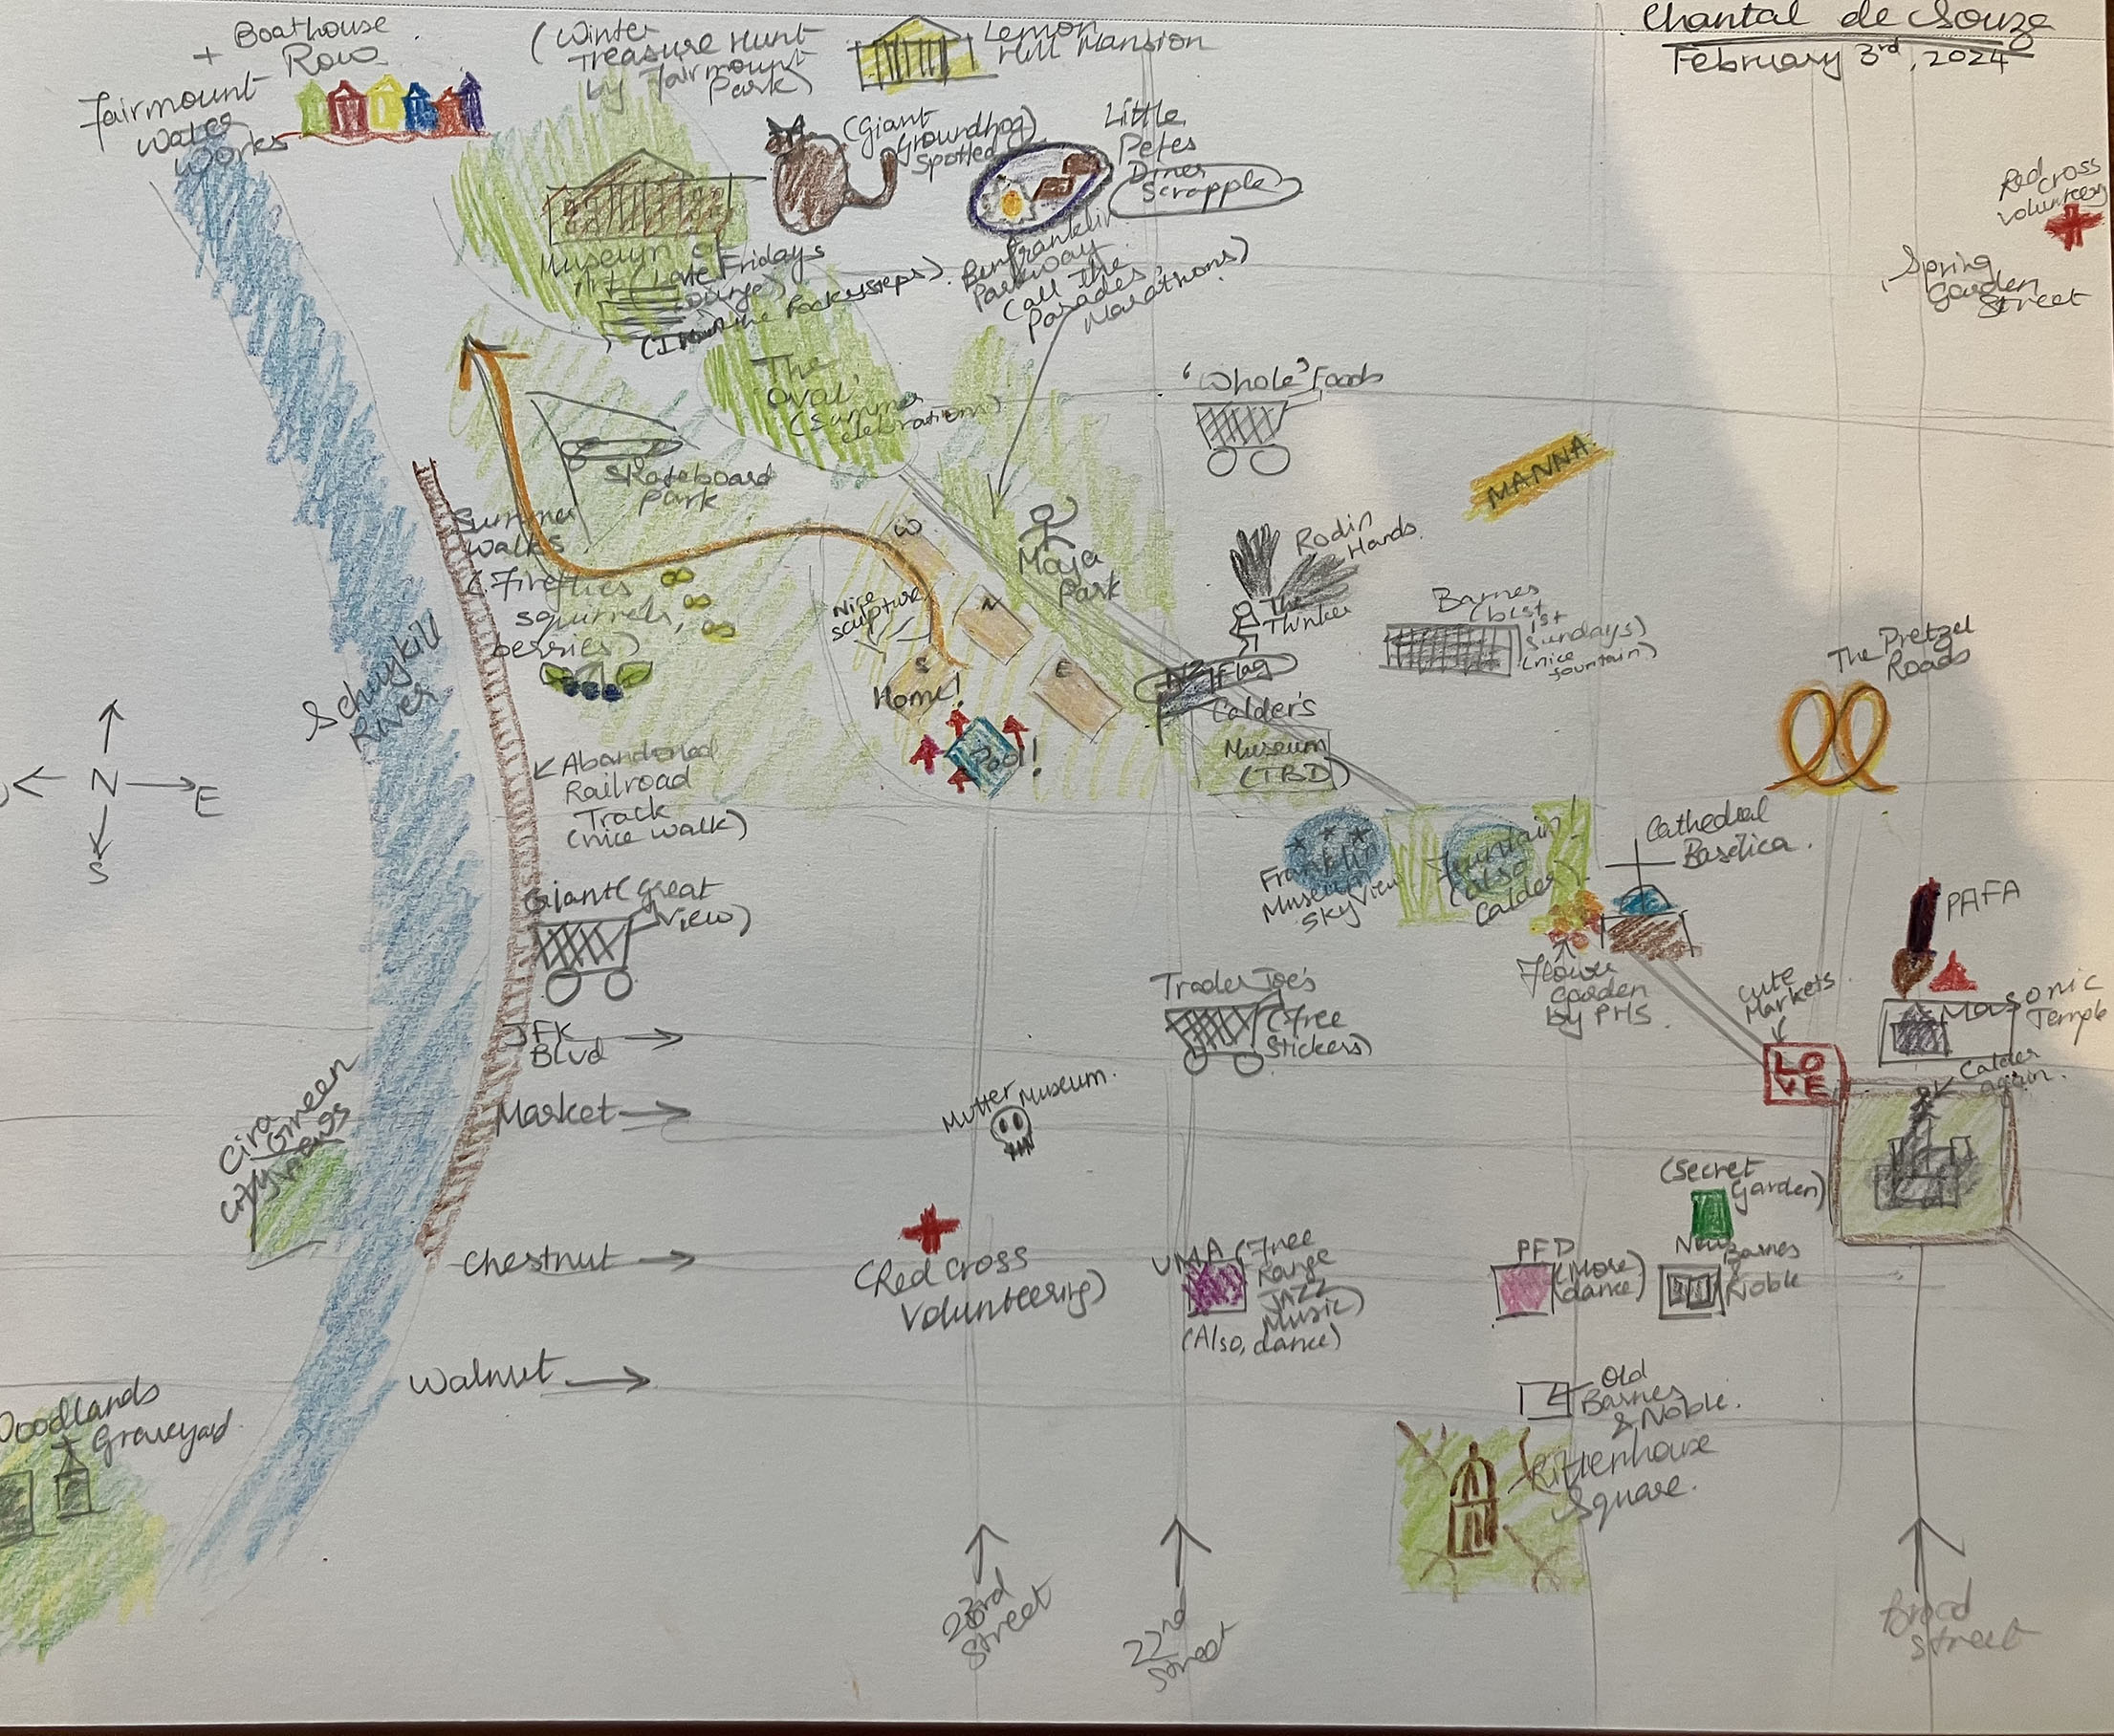 Chantal de Souza
February 3rd, 2024
Boathouse
+ Row
Fairmount
Water
Works
(Winter
Treasure Hunt
by Fairmount
Park)
Lemon
Hill Mansion
(Giant
Groundhog)
Spotted
Little
Petes
Diner
Scrapple
Red Cross
Volunteery
Spring
Garden
Street
Museum of
Art (Late Fridays
(I run the Rocky steps)
Ben Franklin
Parkway
(all the
Parades,
Marathons)
The
Oval
(Summer
celebrations)
'Whole' Foods
MANNA
Skateboard
Park
Summer
Walks
(Fireflies
squirrels,
berries)
W
N
S
E
Nice
sculpture
Home!
Pool!
Moja
Park
Rodin
Hands
The
Thinker
NZ Flag
Barnes
(best
1st
Sundays)
(nice
fountain)
Calder's
Museum
(TBD)
The Pretzel
Roads
Schuykill
River
N
E
S
Abandoned
Railroad
Track
(nice walk)
Franklin
Museum
Sky View
Fountain
(also
Calder)
Cathedral
Basilica.
PAFA
Giant (Great
View)
Flower
Garden
by PHS.
Cute
Markets.
LO
VE
Masonic
Temple
Calder
again.
Trader Joe's
(Free
Stickers)
JFK
Blvd
Market
Mutter Museum.
Cira
Green
(Secret
Garden)
Chestnut
(Red Cross
Volunteering)
UMA (Free
Range
Jazz
Music)
(Also, dance)
PFD
(More
dance)
New
Barnes
& Noble
Walnut
Old
Barnes
& Noble.
Woodlands
Graveyard.
Rittenhouse
Square.
23rd
Street
22nd
Street
Broad
Street